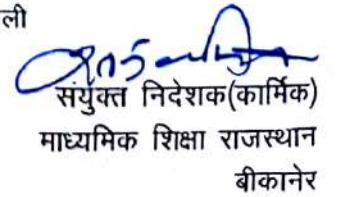 ली
संयुक्त निदेशक(कार्मिक)
माध्यमिक शिक्षा राजस्थान
बीकानेर